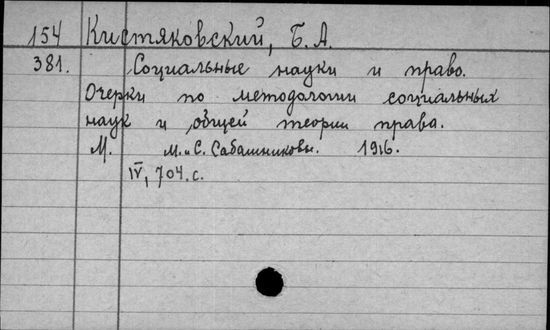 154 Кистяковский, Б. А.
381. Социальные науки и право.
Очерки по методологии социальных
наук и общей теории права.
М. М. и С. Сабашниковы. 1916.
IV, 704. с.